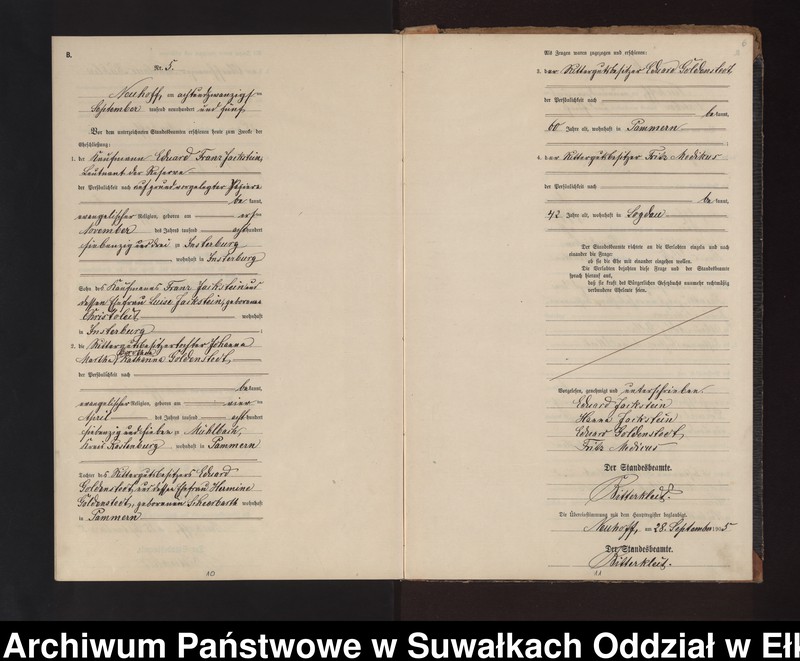 8.
Nr. 5.
Neuhoff, am achtundzwanzigsten
September tausend neunhundert und fünf.
Vor dem unterzeichneten Standesbeamten erschienen heute zum Zwecke der
Eheschließung:
1. der Kaufmann Eduard Franz Jackstein,
Leutnant der Reserve
der Persönlichkeit nach auf grund vorgelegter Papiere
be kannt,
evangelischer Religion, geboren am ersten
November des Jahres tausend achthundert
siebenzig und drei zu Insterburg
, wohnhaft in Insterburg
Sohn des Kaufmanns Franz Jackstein und
dessen Ehefrau Luise Jackstein, geborene
Christoleit wohnhaft
in Insterburg ;
2. die Rittergutsbesitzertochter Johanna
Martha Katharina Goldenstedt,
der Persönlichkeit nach
be kannt,
evangelischer Religion, geboren am vierten
April des Jahres tausend achthundert
siebenzig und sieben zu Mühlbach,
Kreis Rastenburg wohnhaft in Pammern
Tochter des Rittergutsbesitzers Eduard
Goldenstedt, und dessen Ehefrau Hermine
Goldenstedt, geborenen Scheerbarth wohnhaft
in Pammern
10
Als Zeugen waren zugezogen und erschienen:
3. der Rittergutsbesitzer Eduard Goldenstedt,
der Persönlichkeit nach
be kannt,
60 Jahre alt, wohnhaft in Pammern
;
4. der Rittergutsbesitzer Fritz Medikus
der Persönlichkeit nach
be kannt,
42 Jahre alt, wohnhaft in Logdau
Der Standesbeamte richtete an die Verlobten einzeln und nach
einander die Frage:
ob sie die Ehe mit einander eingehen wollen.
Die Verlobten bejahten diese Frage und der Standesbeamte
sprach hierauf aus,
daß sie kraft des Bürgerlichen Gesetzbuchs nunmehr rechtmäßig
verbundene Eheleute seien.
Vorgelesen, genehmigt und unterschrieben.
Eduard Jackstein
Hanna Jackstein
Eduard Goldenstedt,
Fritz Medicus
Der Standesbeamte.
Bitterkleit.
Die Übereinstimmung mit dem Hauptregister beglaubigt.
Neuhoff, am 28. September 1905
Der Standesbeamte.
Bitterkleit.
11
Archiwum Państwowe w Suwałkach Oddział w Ełk